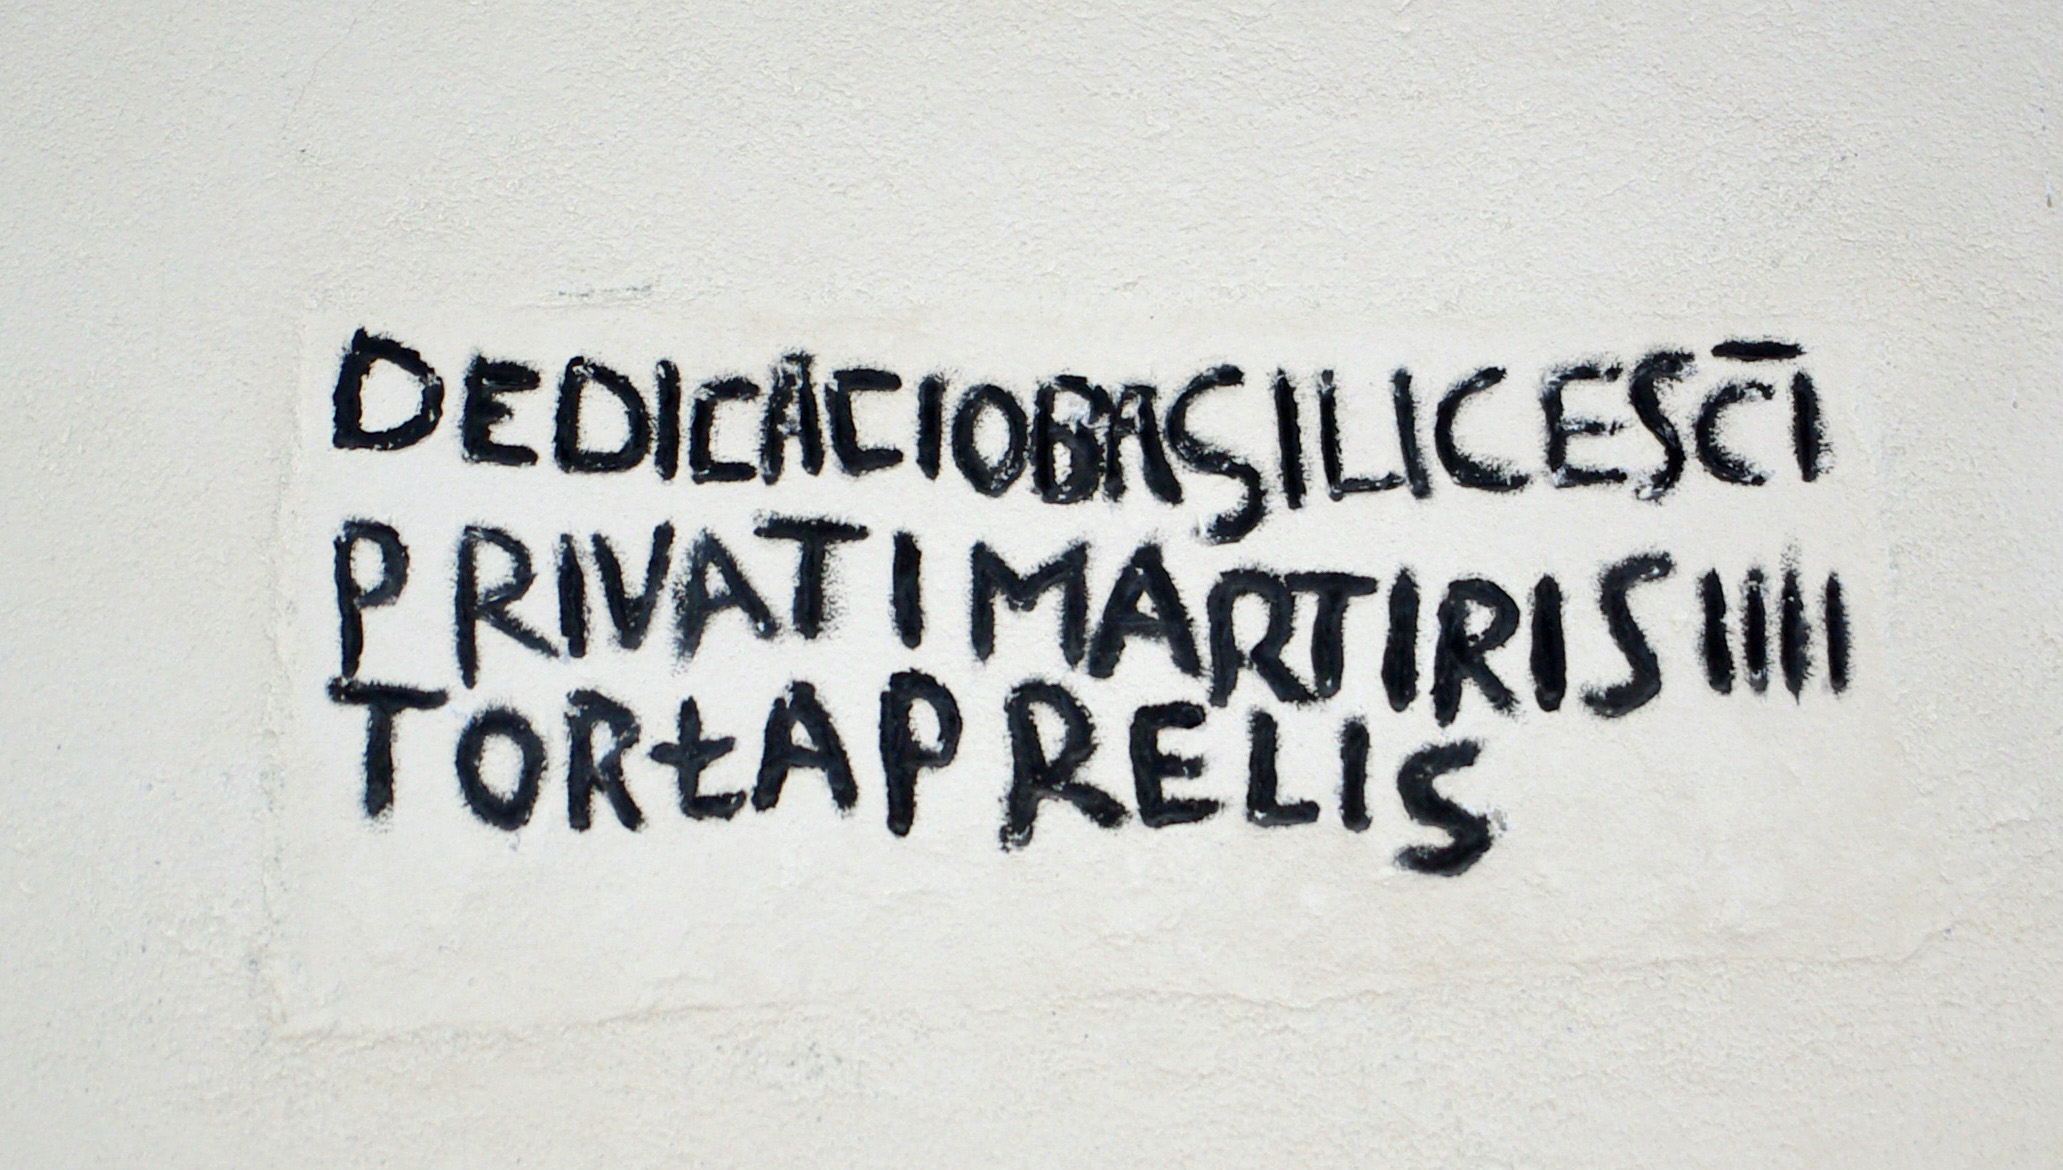 DEDICACIOBASILICESC̅I
PRIVATIMARTIRISIIII
TORtAPRELIS